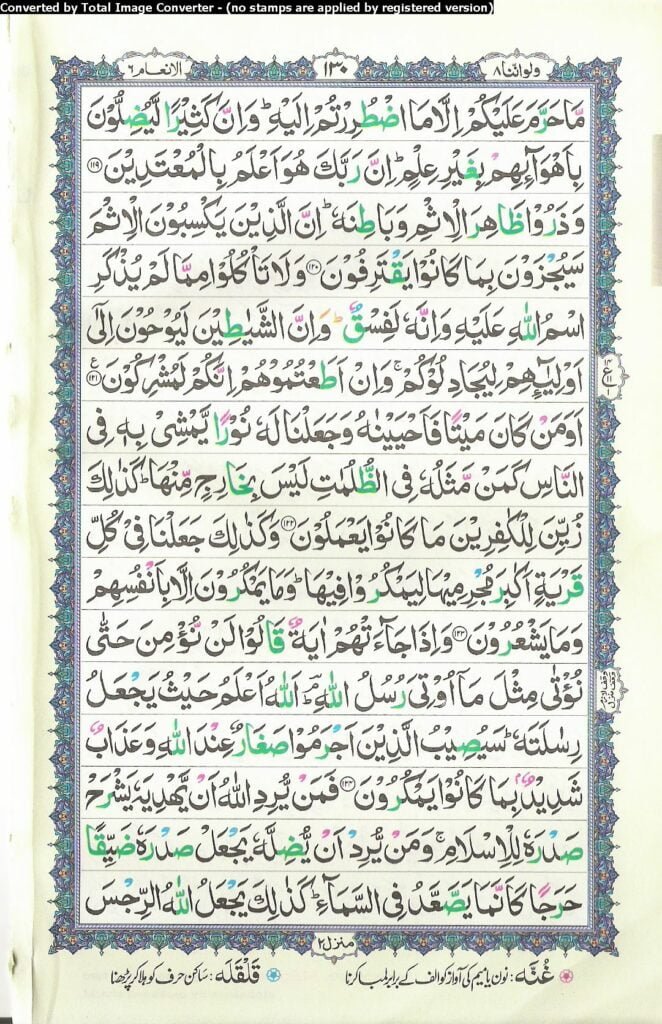 Converted by Total Image Converter - (no stamps are applied by registered version)
ولواننا ٨
١٣٠
الانعام ٦
مَّا حَرَّمَ عَلَيْكُمْ اِلَّا مَا اضْطُرِرْتُمْ اِلَيْهِ ؕ وَاِنَّ كَثِيْرًا لَّيُضِلُّوْنَ
بِاَهْوَآئِهِمْ بِغَيْرِ عِلْمٍ ؕ اِنَّ رَبَّكَ هُوَ اَعْلَمُ بِالْمُعْتَدِيْنَ ۝۱۱۹
وَذَرُوْا ظَاهِرَ الْاِثْمِ وَبَاطِنَهٗ ؕ اِنَّ الَّذِيْنَ يَكْسِبُوْنَ الْاِثْمَ
سَيُجْزَوْنَ بِمَا كَانُوْا يَقْتَرِفُوْنَ ۝۱۲۰ وَلَا تَاْكُلُوْا مِمَّا لَمْ يُذْكَرِ
اسْمُ اللّٰهِ عَلَيْهِ وَاِنَّهٗ لَفِسْقٌ ؕ وَاِنَّ الشَّيٰطِيْنَ لَيُوْحُوْنَ اِلٰٓى
اَوْلِيٰٓئِهِمْ لِيُجَادِلُوْكُمْ ۚ وَاِنْ اَطَعْتُمُوْهُمْ اِنَّكُمْ لَمُشْرِكُوْنَ ۝۱۲۱ ع
اَوَمَنْ كَانَ مَيْتًا فَاَحْيَيْنٰهُ وَجَعَلْنَا لَهٗ نُوْرًا يَّمْشِىْ بِهٖ فِى
النَّاسِ كَمَنْ مَّثَلُهٗ فِى الظُّلُمٰتِ لَيْسَ بِخَارِجٍ مِّنْهَا ؕ كَذٰلِكَ
زُيِّنَ لِلْكٰفِرِيْنَ مَا كَانُوْا يَعْمَلُوْنَ ۝۱۲۲ وَكَذٰلِكَ جَعَلْنَا فِىْ كُلِّ
قَرْيَةٍ اَكٰبِرَ مُجْرِمِيْهَا لِيَمْكُرُوْا فِيْهَا ؕ وَمَا يَمْكُرُوْنَ اِلَّا بِاَنْفُسِهِمْ
وَمَا يَشْعُرُوْنَ ۝۱۲۳ وَاِذَا جَآءَتْهُمْ اٰيَةٌ قَالُوْا لَنْ نُّؤْمِنَ حَتّٰى
نُؤْتٰى مِثْلَ مَاۤ اُوْتِىَ رُسُلُ اللّٰهِ ؔۘ اَللّٰهُ اَعْلَمُ حَيْثُ يَجْعَلُ
رِسٰلَتَهٗ ؕ سَيُصِيْبُ الَّذِيْنَ اَجْرَمُوْا صَغَارٌ عِنْدَ اللّٰهِ وَعَذَابٌ
شَدِيْدٌۢ بِمَا كَانُوْا يَمْكُرُوْنَ ۝۱۲۴ فَمَنْ يُّرِدِ اللّٰهُ اَنْ يَّهْدِيَهٗ يَشْرَحْ
صَدْرَهٗ لِلْاِسْلَامِ ۚ وَمَنْ يُّرِدْ اَنْ يُّضِلَّهٗ يَجْعَلْ صَدْرَهٗ ضَيِّقًا
حَرَجًا كَاَنَّمَا يَصَّعَّدُ فِى السَّمَآءِ ؕ كَذٰلِكَ يَجْعَلُ اللّٰهُ الرِّجْسَ
منزل ٢
غُنَّه: نون یا میم کی آواز کو الف کے برابر لمبا کرنا
قَلْقَلَه: ساکن حرف کو ہلا کر پڑھنا